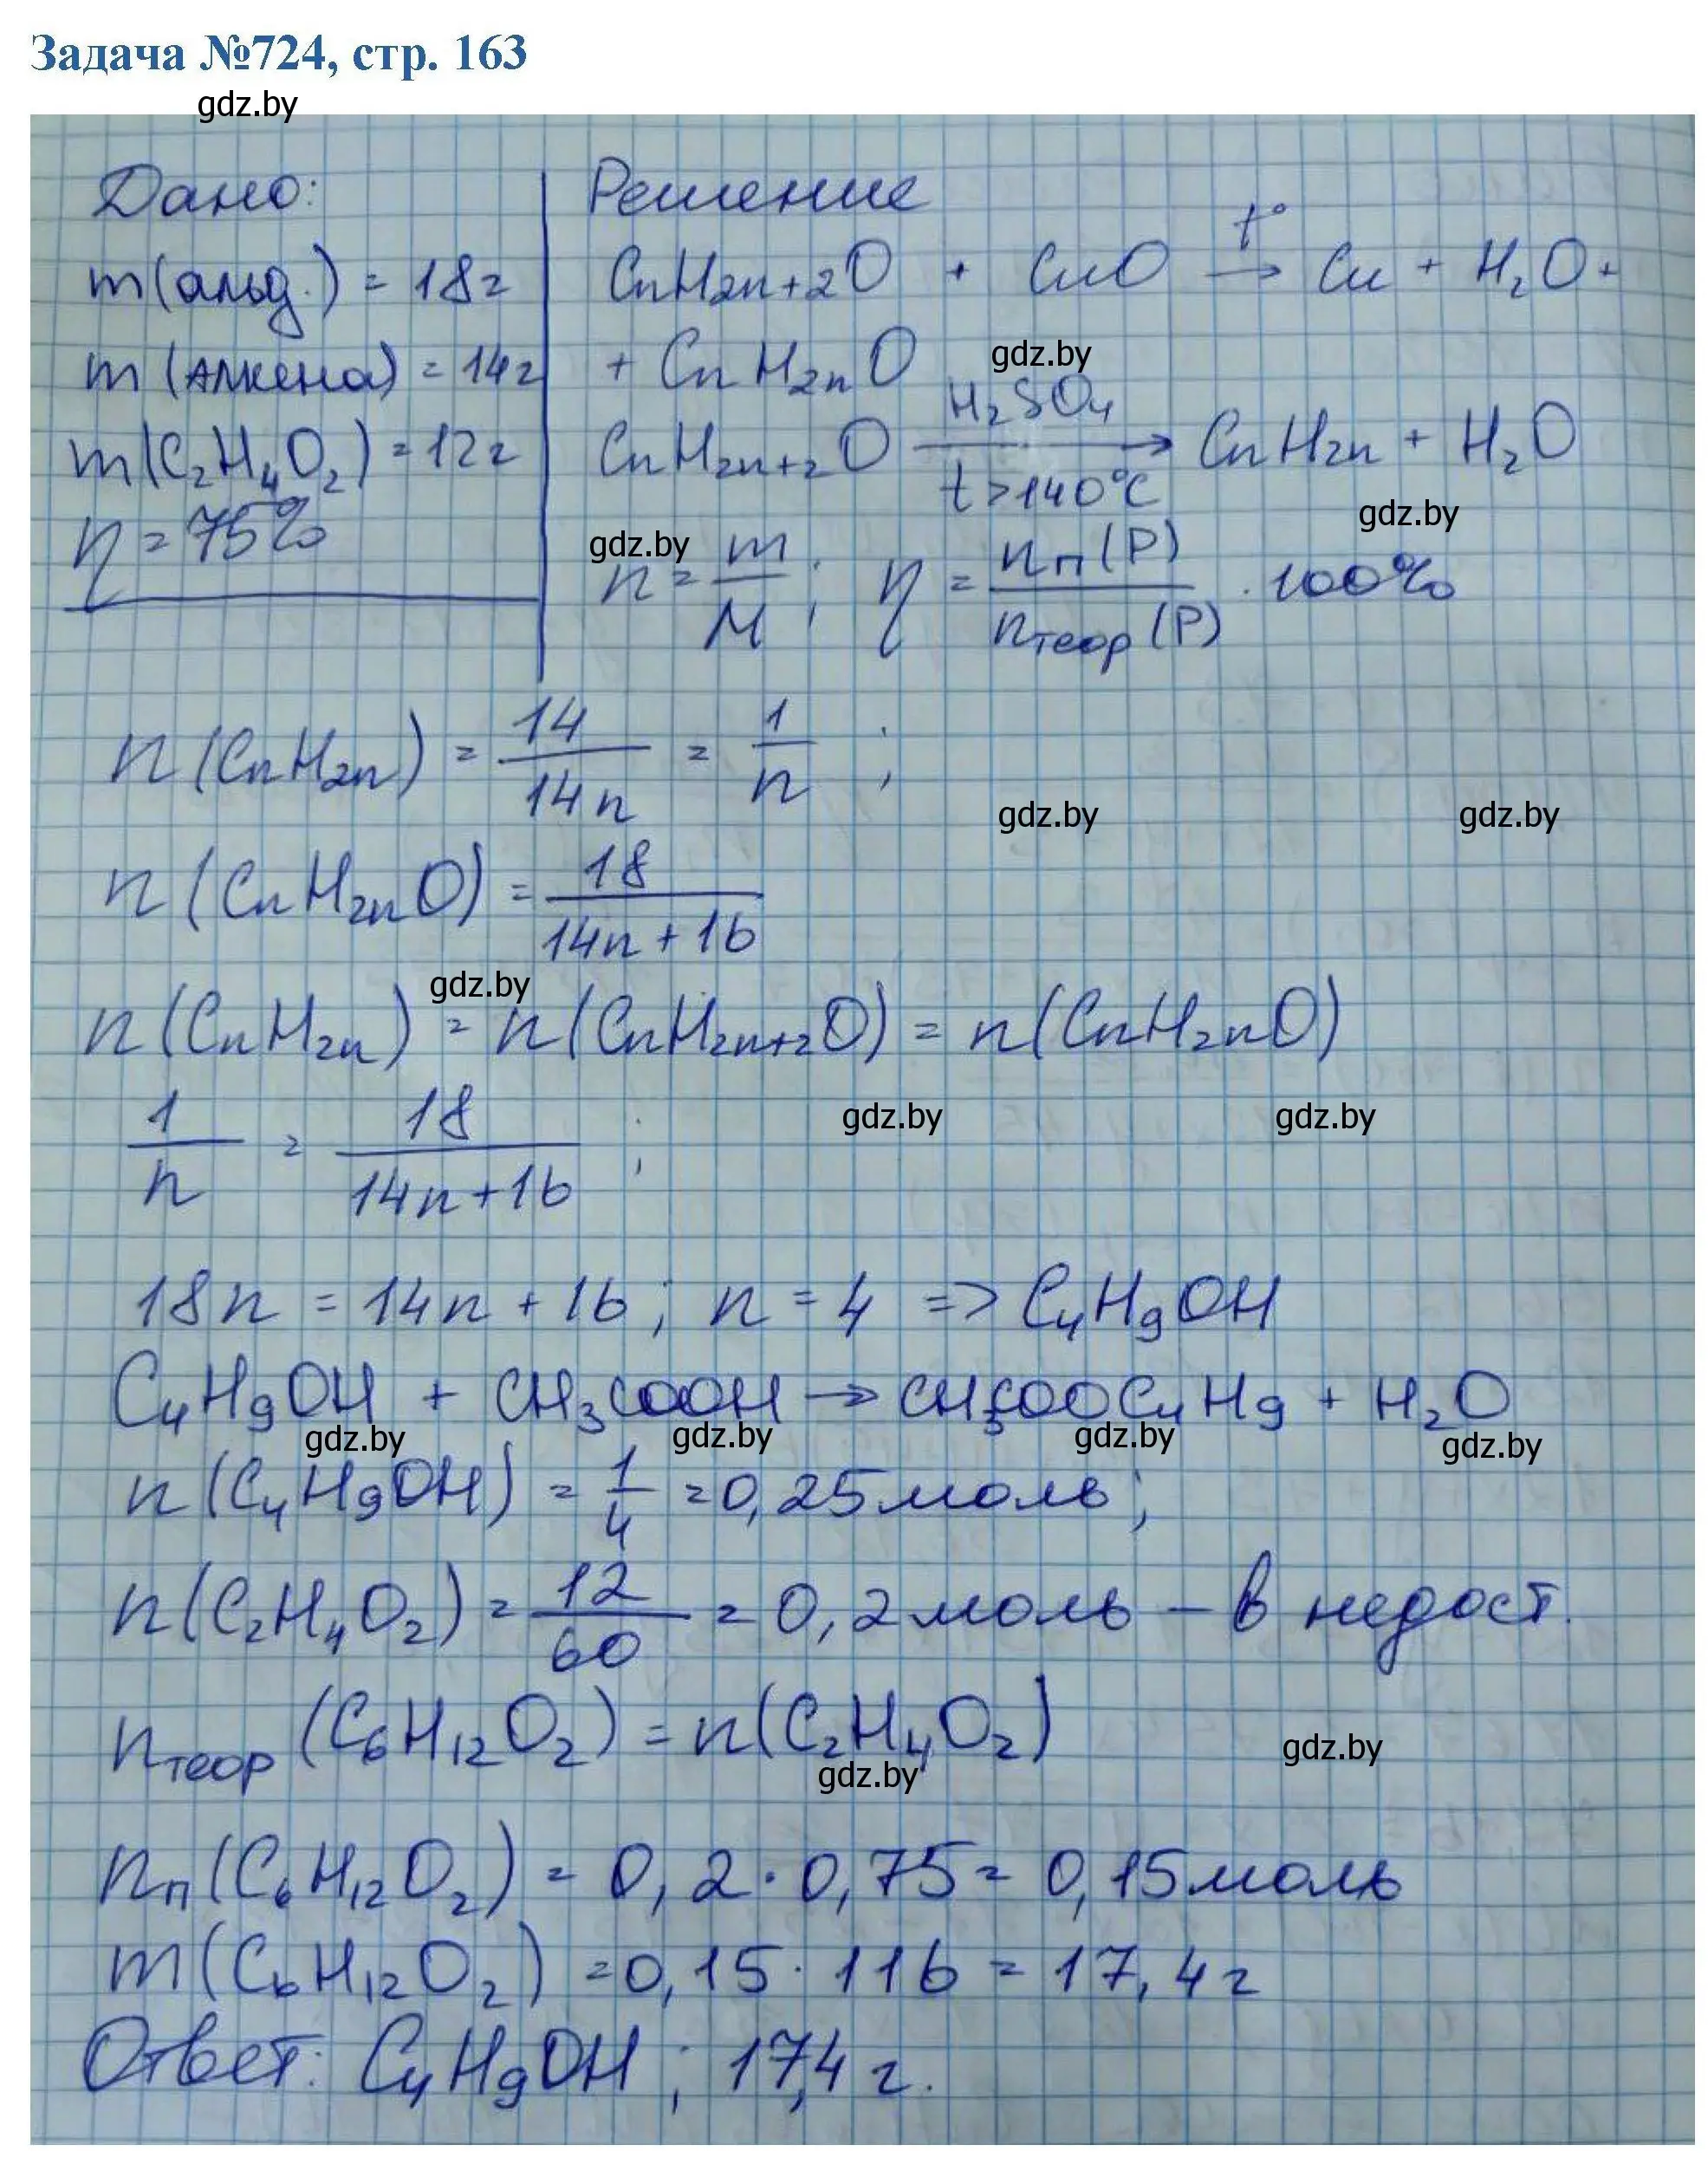 Задача №724, стр. 163
gdz.by
Дано:
m(альд.) = 18г
m(алкена) = 14г
m(C₂H₄O₂) = 12г
η = 75%
Решение
CnH₂n₊₂O + CuO t° → Cu + H₂O +
+ CnH₂nO
gdz.by
CnH₂n₊₂O H₂SO₄ → t>140°C CnH₂n + H₂O
gdz.by
gdz.by
n = m/M ; η = nп(P)/nтеор(P) · 100%
n(CnH₂n) = 14/14n = 1/n ;
gdz.by gdz.by
n(CnH₂nO) = 18/14n+16
gdz.by
n(CnH₂n) = n(CnH₂n₊₂O) = n(CnH₂nO)
1/n = 18/14n+16 ;
gdz.by gdz.by
18n = 14n + 16 ; n = 4 => C₄H₉OH
C₄H₉OH + CH₃COOH → CH₃COOC₄H₉ + H₂O
gdz.by gdz.by gdz.by gdz.by
n(C₄H₉OH) = 1/4 = 0,25 моль ;
n(C₂H₄O₂) = 12/60 = 0,2 моль – в недост.
nтеор(C₆H₁₂O₂) = n(C₂H₄O₂)
gdz.by gdz.by
nп(C₆H₁₂O₂) = 0,2 · 0,75 = 0,15 моль
m(C₆H₁₂O₂) = 0,15 · 116 = 17,4 г
Ответ: C₄H₉OH ; 17,4 г.